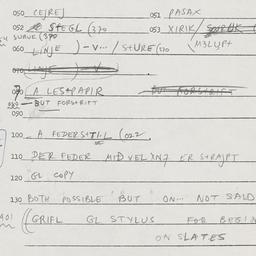 050 (CEJRE) 051 PASAX
052 STEGL (370 053 XIRIK/
SUAVE (370 M3LYPT
060 LINJE) - V... / STURE (370
070 (LINJE) - V
A LESTPAPIR BUT FORSKRIFT
BUT FORSKRIFT
090
100 A FEDERSTIL (022
110 DER FEDER MID VEL ER STRAJPT
120 GL COPY
130 BOTH POSSIBLE "BUT" ON... NOT SALD
A01 ((GRIFL GL STYLUS FOR BEGIN
ON SLATES